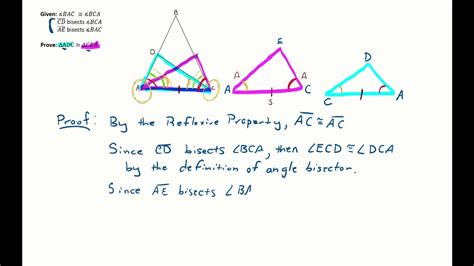 Given: ∡BAC ≅ ∡BCA
CD bisects ∡BCA
AE bisects ∡BAC
Prove: △ADC ≅
B
D
A
C
E
A
A
A
C
S
D
C
A
Proof: By the Reflexive Property, AC ≅ AC
Since CD bisects ∠BCA, then ∠ECD ≅ ∠DCA
by the definition of angle bisector.
Since AE bisects ∠BA